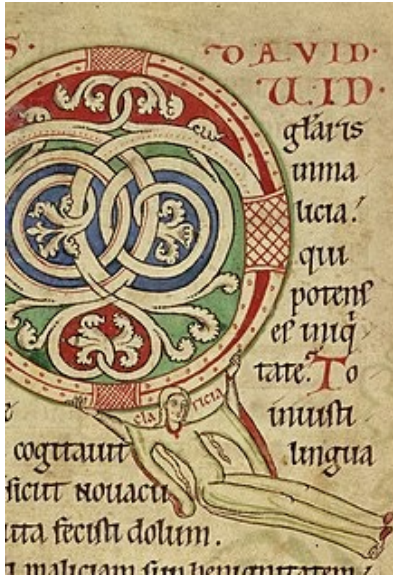 S. DAVID·
UID·
gl̃aris
inma
licia.
qui
potens
es iniq̇
tate. To
cla ricia iniusti
cogitauit lingua
sicut nouacu
uta fecisti dolum.
maliciam sup benignitatem